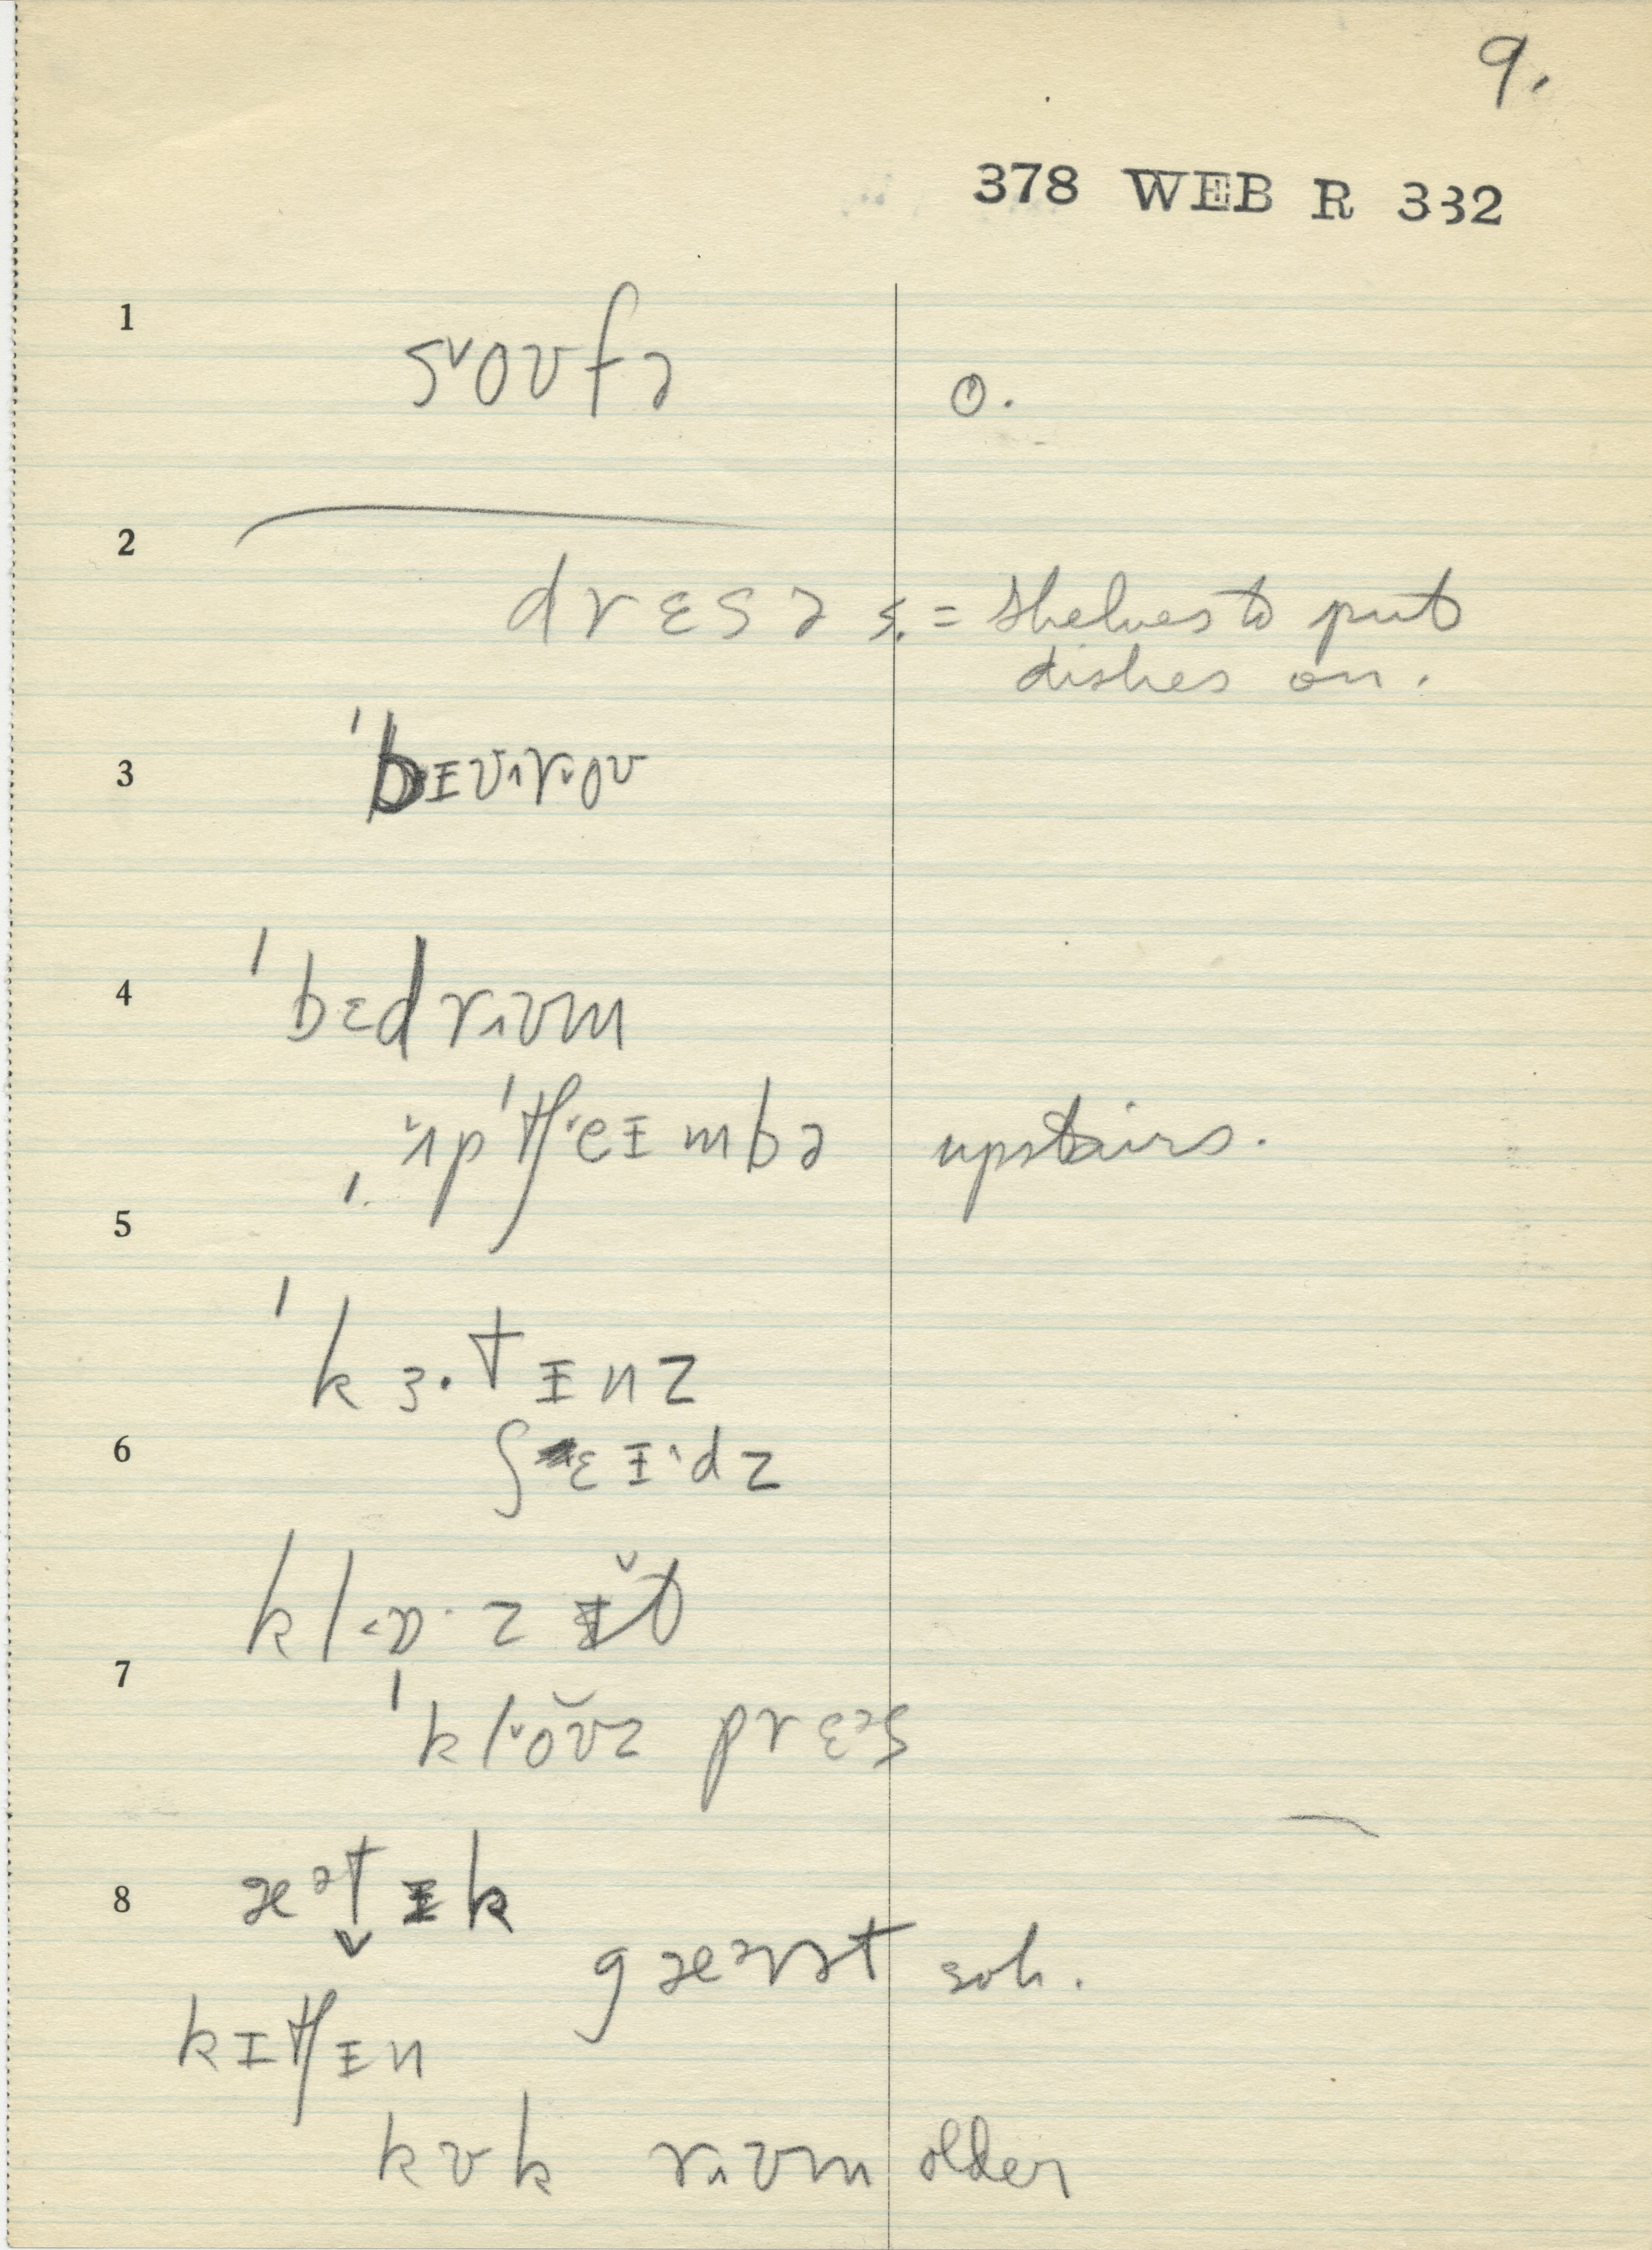 9.
378 WEB R 332
1
s˅oʊfə ⓞ.
2
drɛsə s. = shelves to put
dishes on.
3
ˈbɪʊ˄r˅oʊ
4
ˈbɛdr˄ʊm
ˌʌ̌pˈtʃ˅eɪmbə upstairs.
5
ˈkɜ·tɪnz
6
ʃɛɪ˄dz
kl<ɒ·zɪ̌t
7
ˈkl˅oʊ̆z prɛᵊs
8
æᵊt̬ɪk
gæᵊrət sub.
kɪtʃɪn
kʊk r˄ʊm older